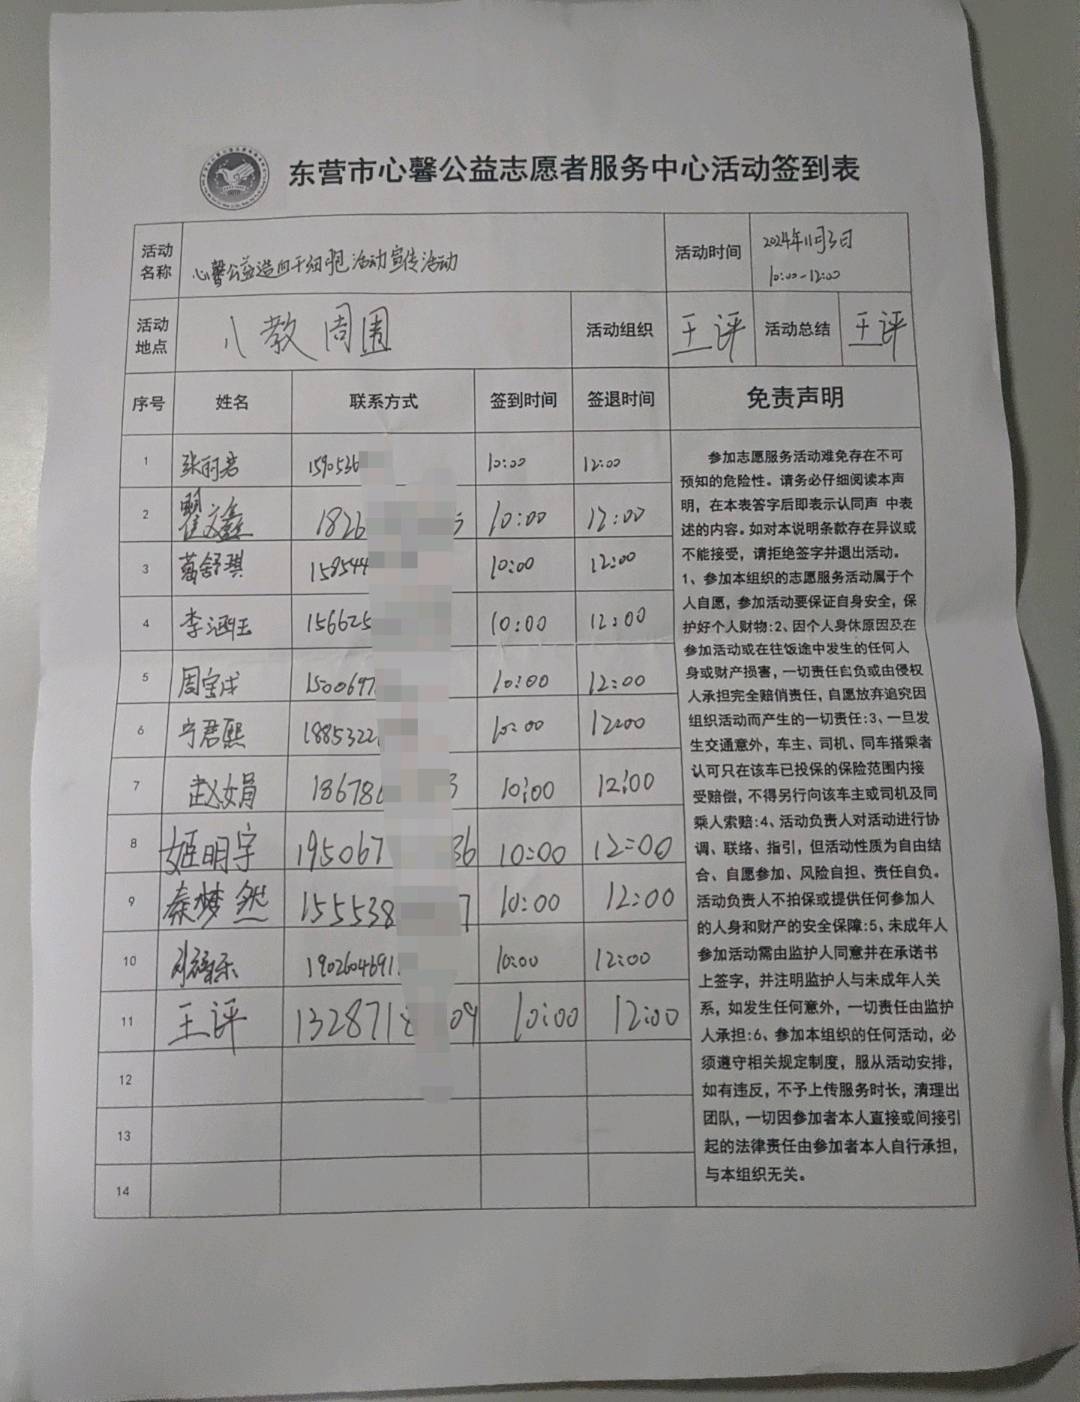 东营市心馨公益志愿者服务中心活动签到表
活动名称 心馨公益造血干细胞活动宣传活动 活动时间 2024年11月3日 10:00-12:00
活动地点 八教周围 活动组织 王评 活动总结 王评
序号 姓名 联系方式 签到时间 签退时间 免责声明
1 张雨君 1590536 10:00 12:00
2 翟文鑫 1826 10:00 12:00
3 葛舒琪 158544 10:00 12:00
4 李涵玉 156625 10:00 12:00
5 周宝成 1500697 10:00 12:00
6 宁君熙 1885322 10:00 12:00
7 赵文娟 18678 3 10:00 12:00
8 姬明宇 195067 36 10:00 12:00
9 秦梦然 155538 7 10:00 12:00
10 190260469 10:00 12:00
11 王评 1328718 09 10:00 12:00
12
13
14
参加志愿服务活动难免存在不可
预知的危险性。请务必仔细阅读本声
明，在本表答字后即表示认同声 中表
述的内容。如对本说明条款存在异议或
不能接受，请拒绝签字并退出活动。
1、参加本组织的志愿服务活动属于个
人自愿，参加活动要保证自身安全，保
护好个人财物:2、因个人身休原因及在
参加活动或在往饭途中发生的任何人
身或财产损害，一切责任自负或由侵权
人承担完全赔俏责任，自愿放弃追究因
组织活动而产生的一切责任:3、一旦发
生交通意外，车主、司机、同车搭乘者
认可只在该车已投保的保险范围内接
受赔偿，不得另行向该车主或司机及同
乘人索赔:4、活动负责人对活动进行协
调、联络、指引，但活动性质为自由结
合、自愿参加、风险自担、责任自负。
活动负责人不拍保或提供任何参加人
的人身和财产的安全保障:5、未成年人
参加活动需由监护人同意并在承诺书
上签字，并注明监护人与未成年人关
系，如发生任何意外，一切责任由监护
人承担:6、参加本组织的任何活动，必
须遵守相关规定制度，服从活动安排，
如有违反，不予上传服务时长，清理出
团队，一切因参加者本人直接或间接引
起的法律责任由参加者本人自行承担，
与本组织无关。